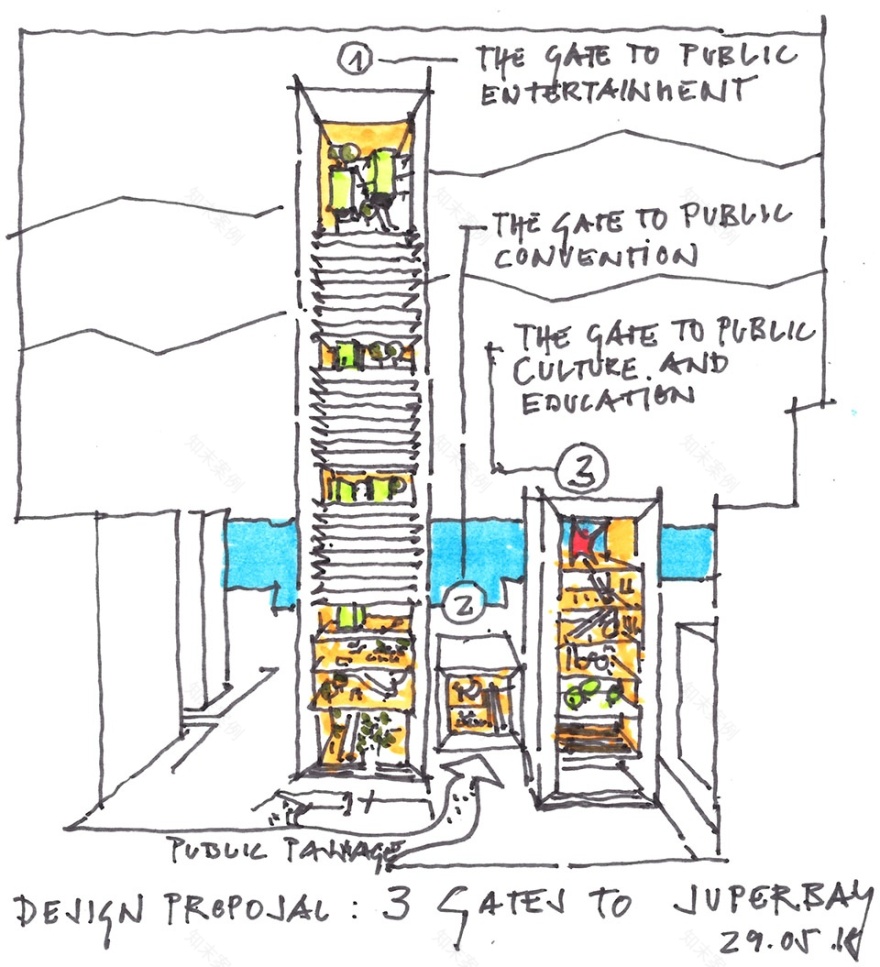 1
THE GATE TO PUBLIC
ENTERTAINMENT
THE GATE TO PUBLIC
CONVENTION
THE GATE TO PUBLIC
CULTURE AND
EDUCATION
3
2
PUBLIC PASSAGE
DESIGN PROPOSAL: 3 GATES TO SUPERBAY
29.05.18
知末案例